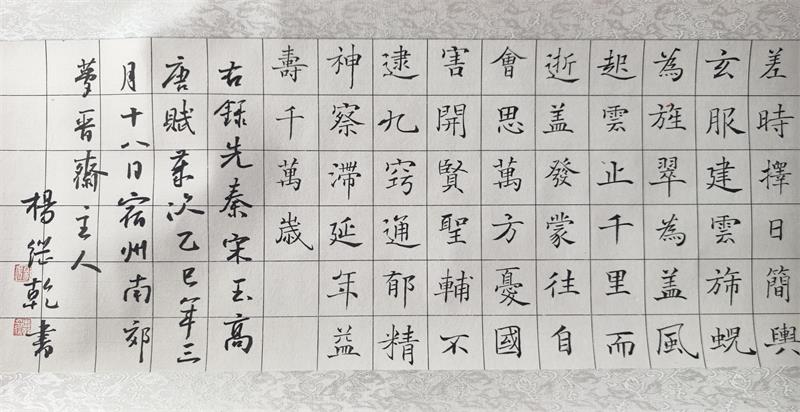 差時擇日簡輿
玄服建雲斾蜺
為旌翠為盖風
起雲止千里而
逝盖發蒙往自
會思萬方憂國
害開賢聖輔不
逮九窍通郁精
神察滯延年益
壽千萬歳
右録先秦宋玉高
唐賦葉次乙巳年三
月十八日宿州南郊
夢晋齋主人
楊继乾書